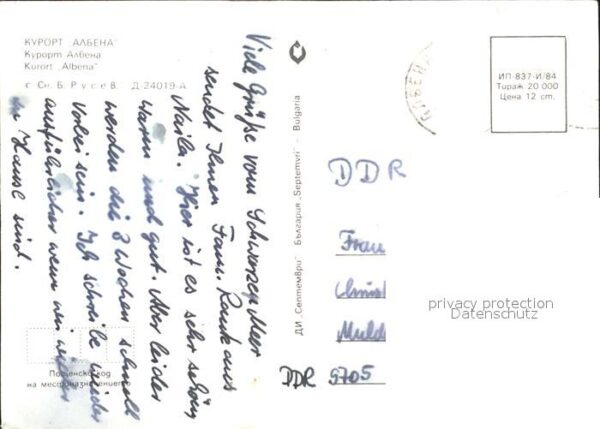 КУРОРТ „АЛБЕНА"
Курорт Албена
Kurort „Albena"
с Сн. Б. Русев. Д-24019-А
Viele Grüße vom Schwarzen Meer
sendet Ihnen Fam. Rauk aus
Naila. Hier ist es sehr schön
warm und gut. Aber leider
werden die 3 Wochen schnell
vorbei sein. Ich schreibe wieder
ausführlicher wenn wir wieder
zu Hause sind.
Пощенски код
на местоназначението
ДИ „Септември" - България „Septemvri" - Bulgaria
АЛБЕНА
ИП-837-И/84
Тираж 20 000
Цена 12 ст.
DDR
Frau
Christ
Muld
DDR 9705
privacy protection
Datenschutz